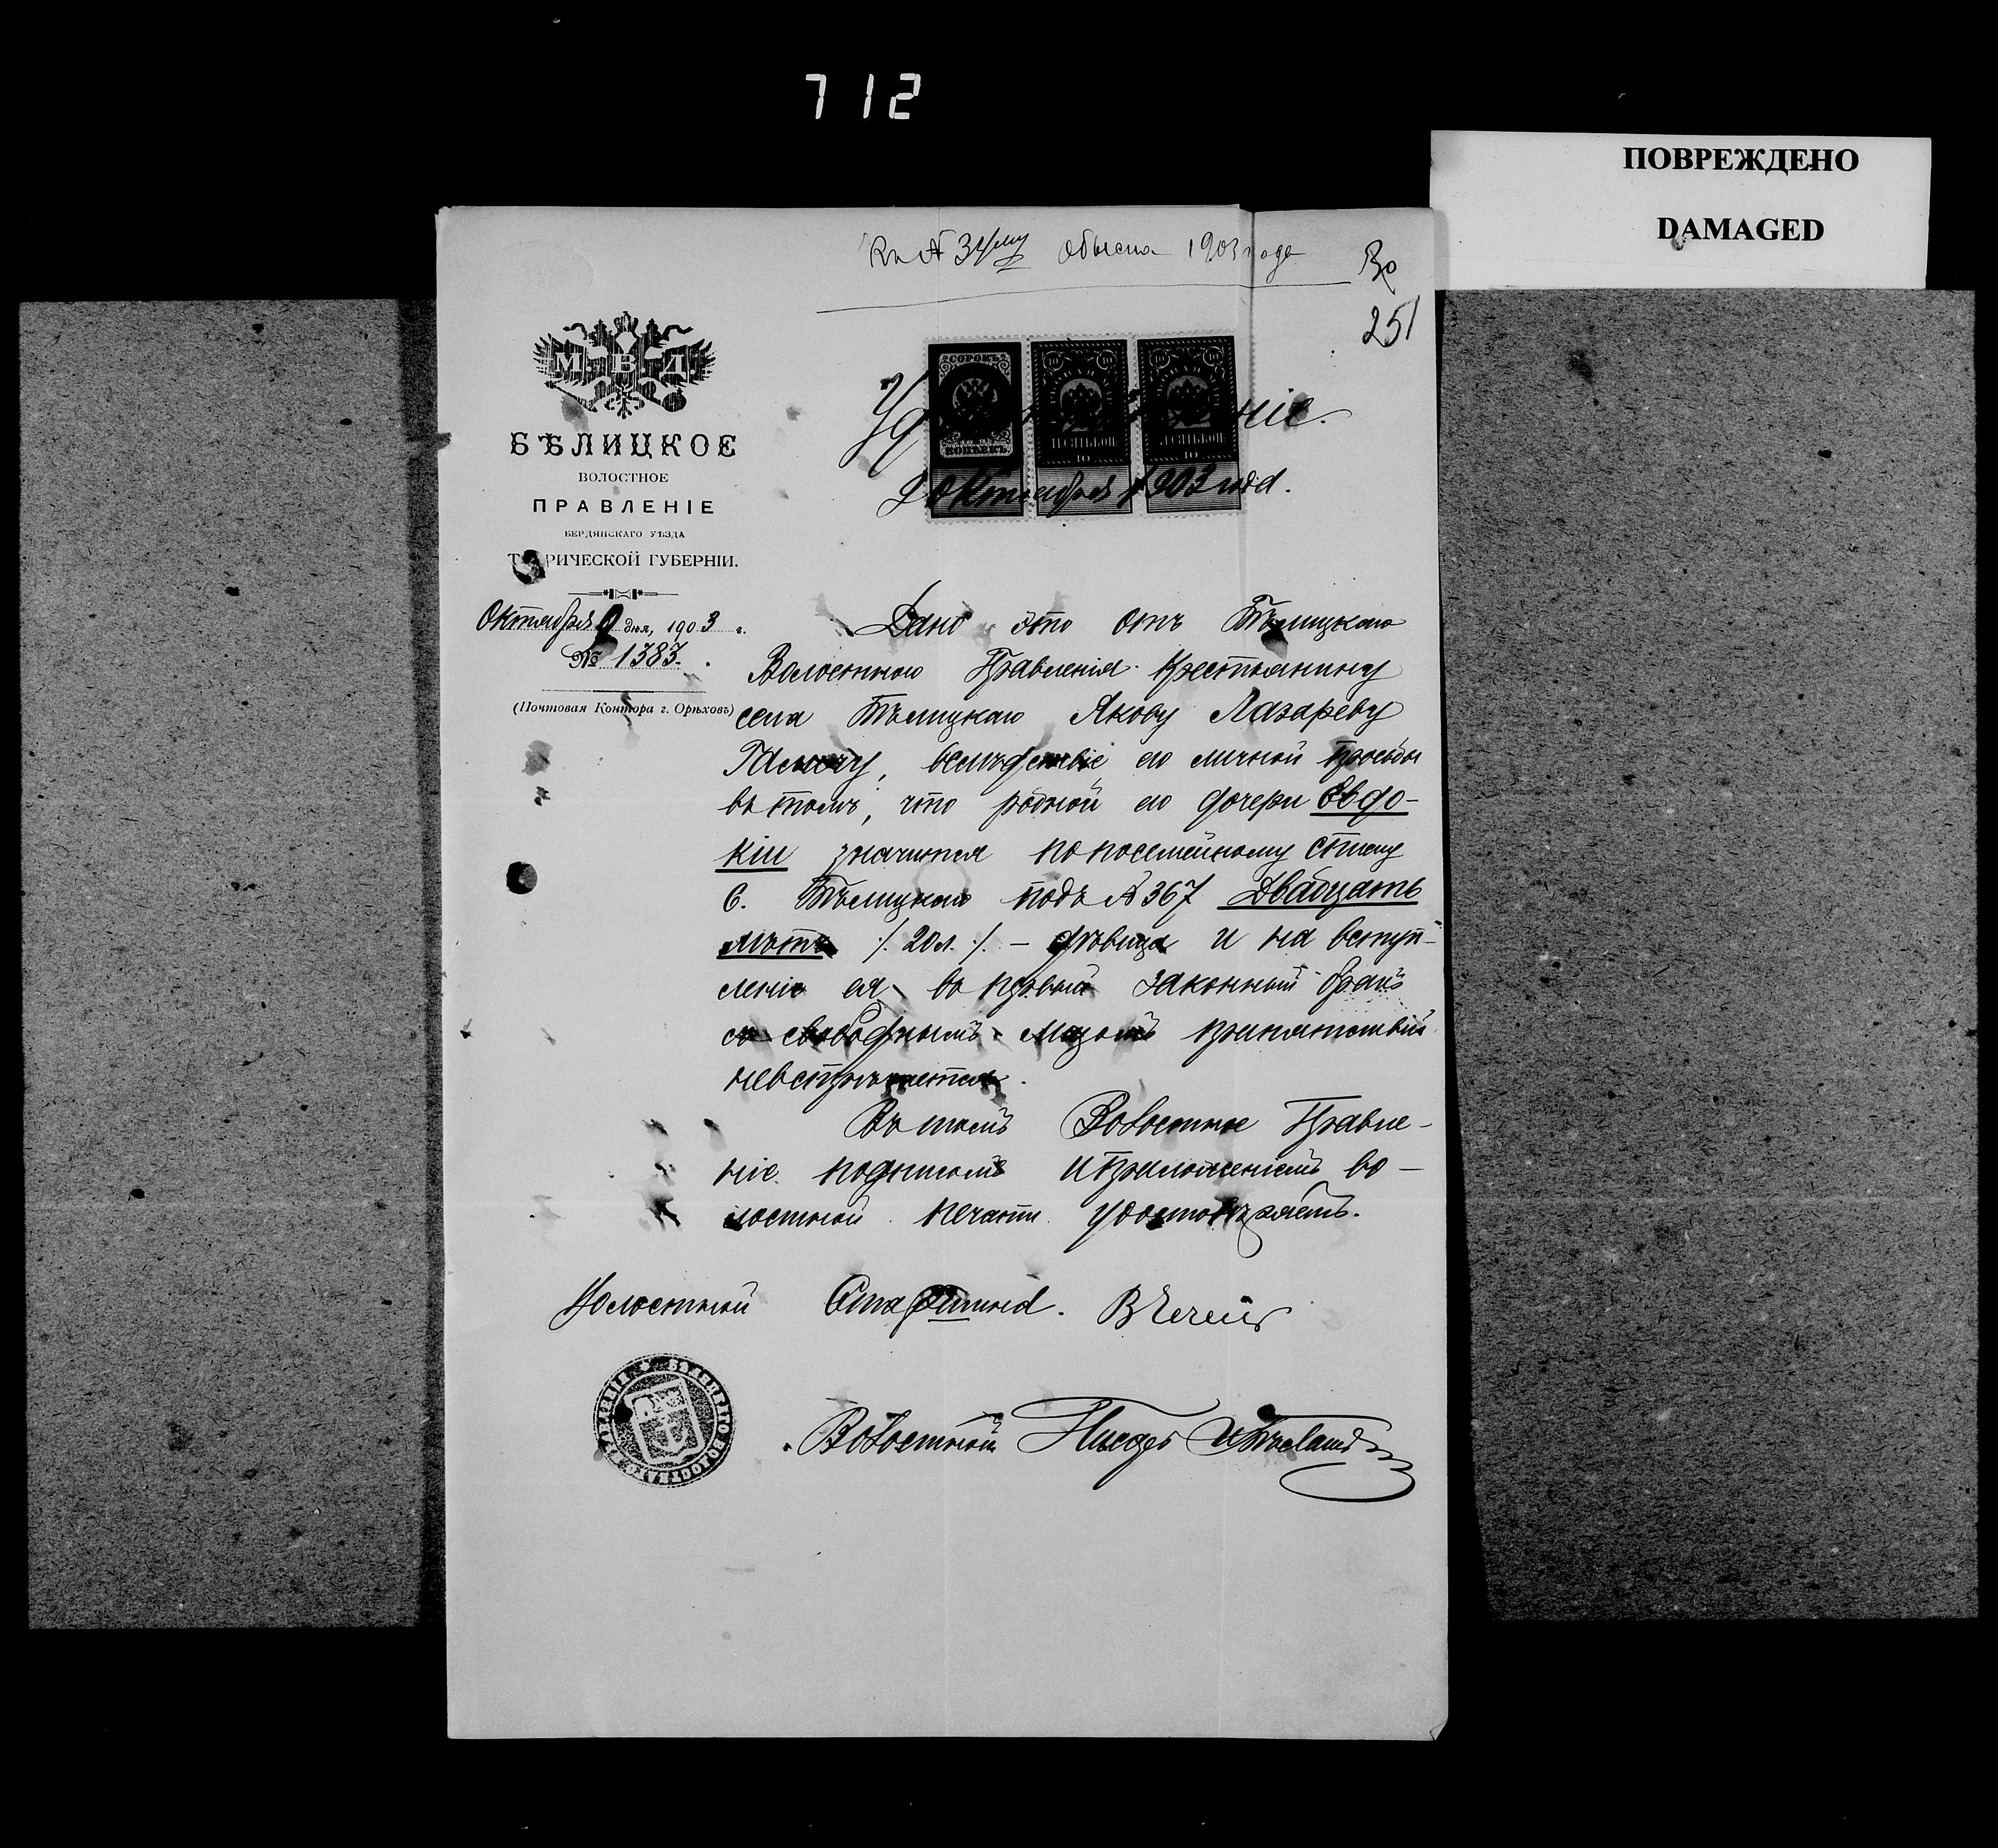 712
ПОВРЕЖДЕНО
DAMAGED
Къ № 34му Обыска 1903 года
251
М В Д
БѢЛИЦКОЕ
ВОЛОСТНОЕ
ПРАВЛЕНІЕ
БЕРДЯНСКАГО УѢЗДА
ТАВРИЧЕСКОЙ ГУБЕРНІИ.
Октября 9 дня, 1903 г.
№ 1383.
(Почтовая Контора г. Орѣховъ)
СОРОКЪ
КОПѢЕКЪ
10 10
10
10 10
10
9 Октября 1903 года.
Дано это отъ Бѣлицкаго
Волостного Правленія крестьянину
села Бѣлицкаго Якову Лазареву
вслѣдствіе его личной просьбы
въ томъ, что родной его дочери Евдо-
кіи значится по посемейному списку
с. Бѣлицкаго подъ № 367 Двадцать
лѣтъ /. 20 л. /. – дѣвица и на вступ-
леніе ея въ первый законный бракъ
съ свободнымъ лицомъ препятствій
невстрѣчается.
Въ томъ Волостное Правле-
ніе подписомъ и приложеніемъ во-
лостной печати удостовѣряетъ.
Волостной Старшина.
Волостный Писарь